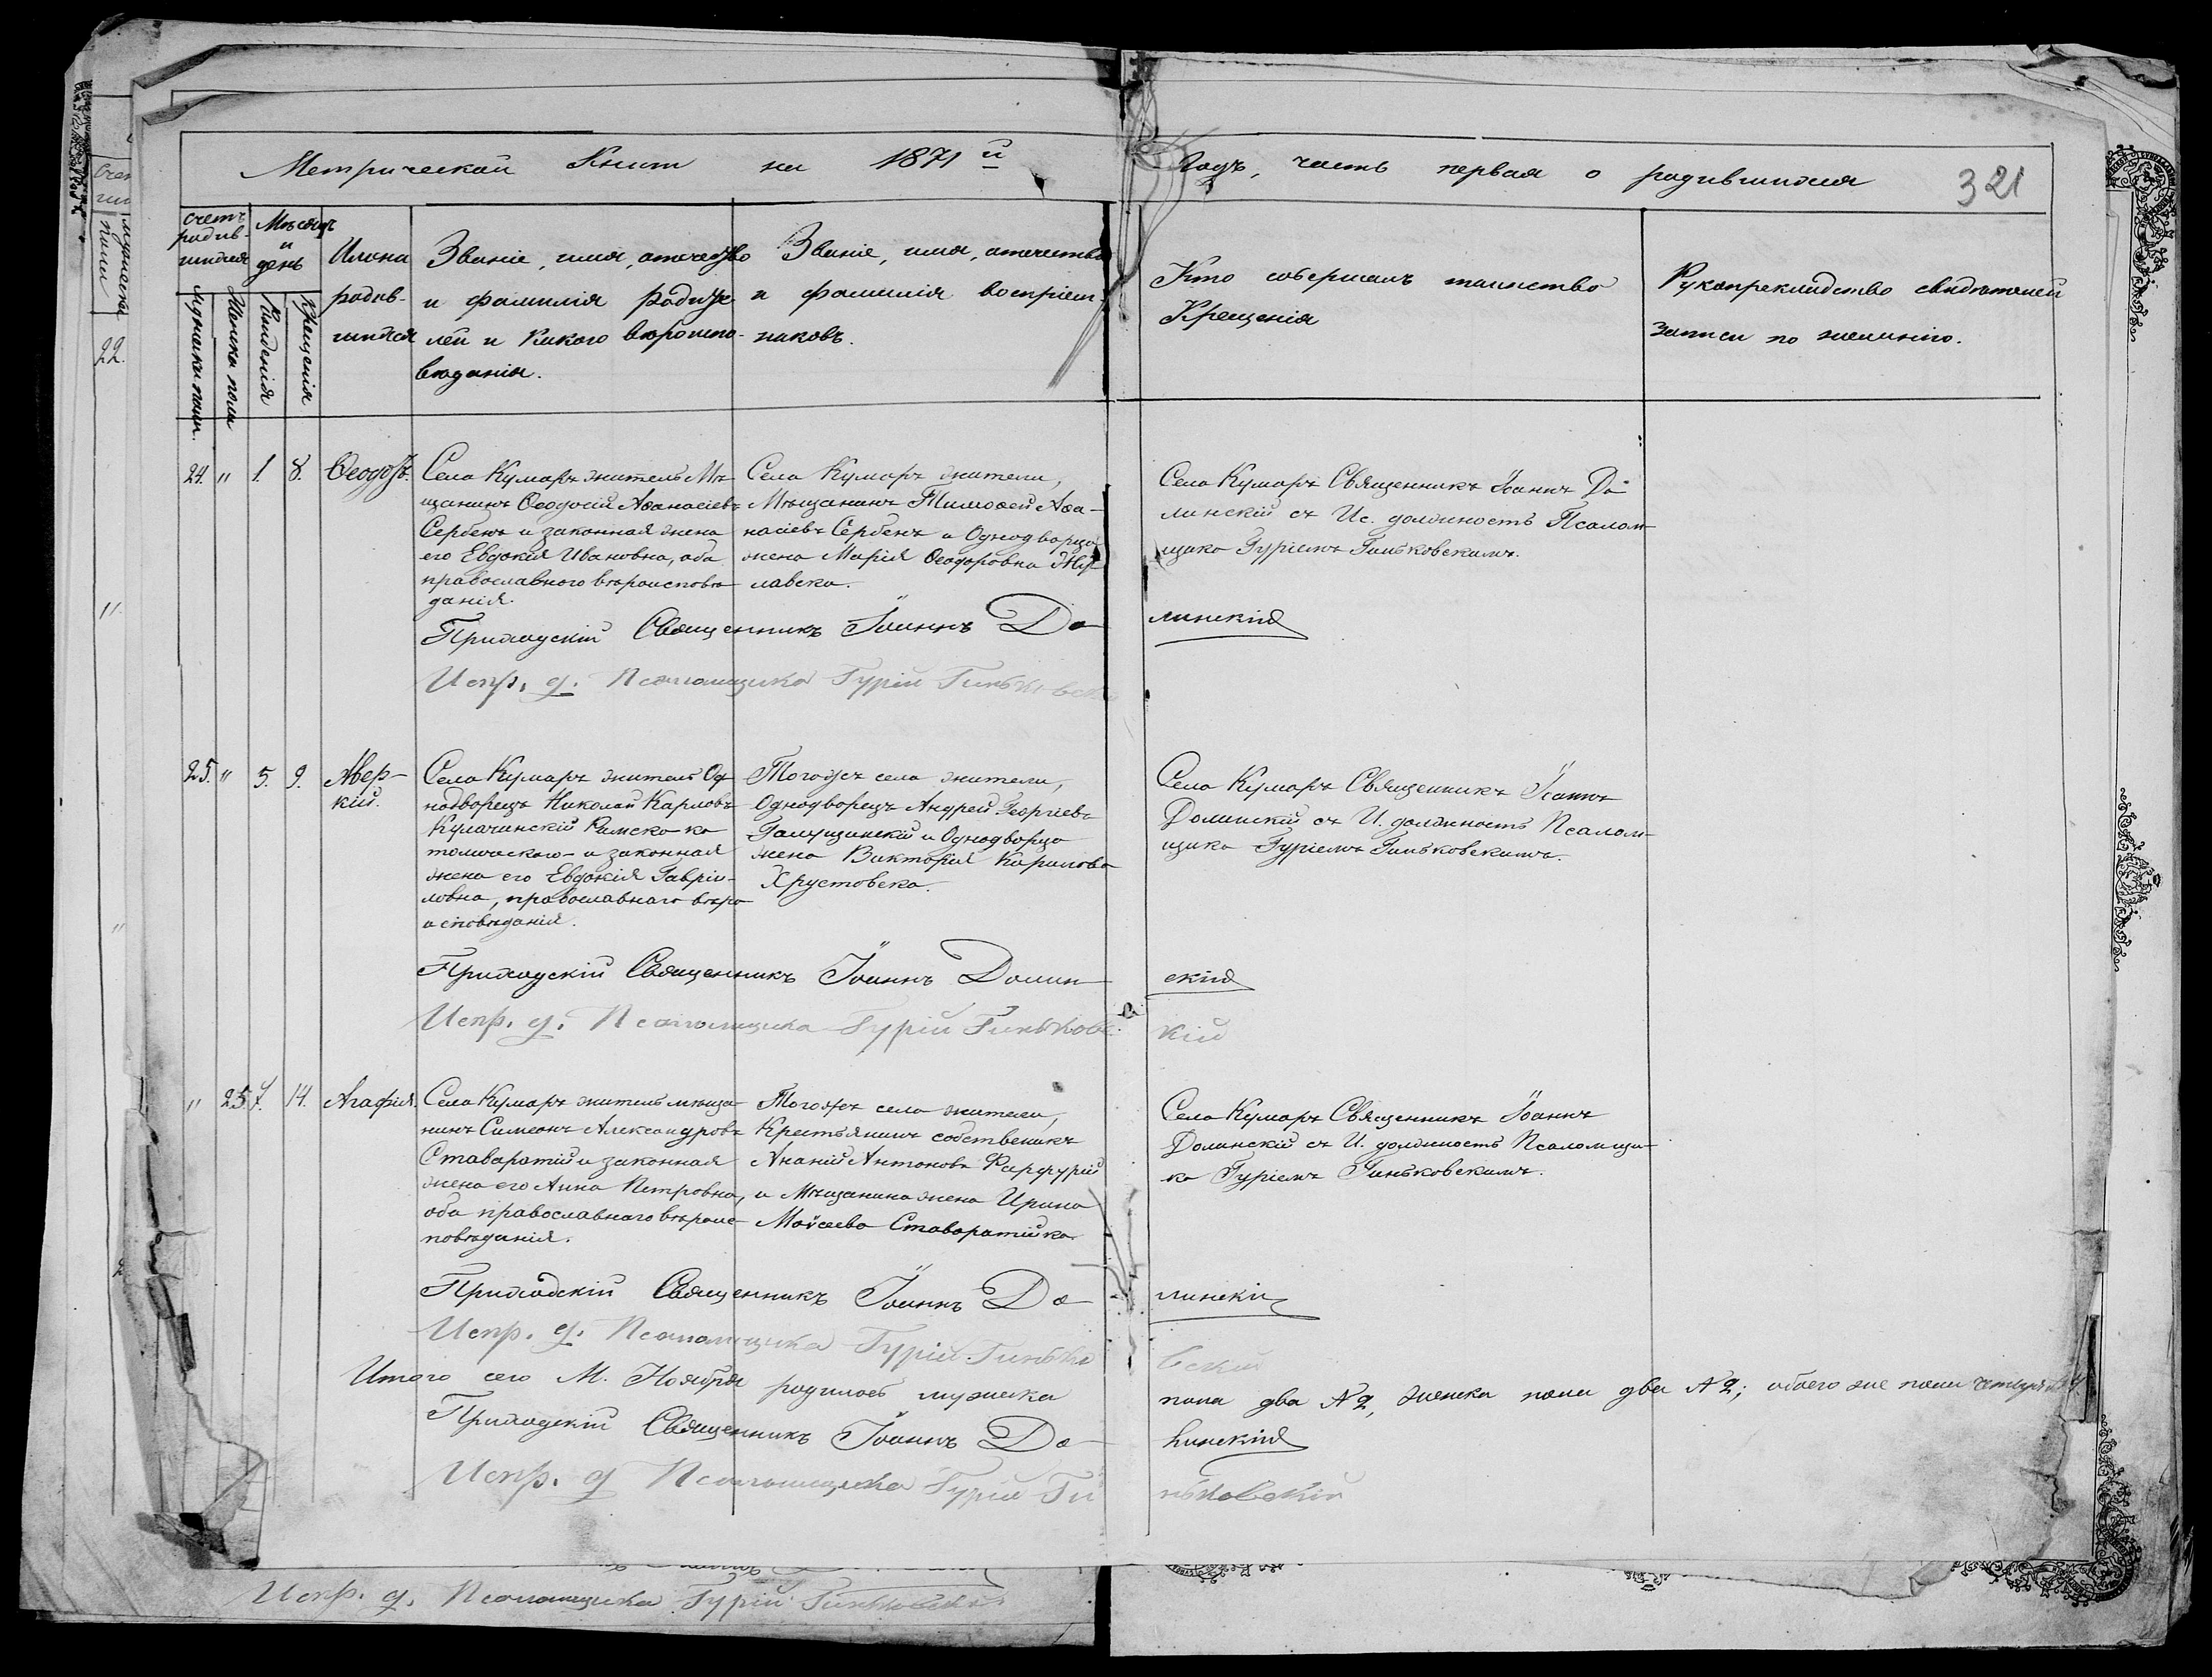 Метрической Книги на 1871й Годъ, часть первая о родившихся
321
счетъ родив-шихся
Мѣсяцъ и день
Имена родив-шихся
Званіе, имя, отечество и фамилія родите-лей и какого вѣроиспо-вѣданія.
Званіе, имя, отечество и фамилія воспріем-никовъ.
Кто совершалъ таинство Крещенія
Рукоприкладство свидѣтелей записи по желанію.
Мужеска пола.
Женска пола
Рожденія
Крещенія
22.
24. " 1. 8. Ѳеодосъ.
Села Кумаръ житель Мѣ-
щанинъ Ѳеодосій Аѳанасіевъ
Сербенъ и законная жена
его Евдокія Ивановна, оба
православнаго вѣроисповѣ-
данія.
Села Кумаръ жители,
Мѣщанинъ Тимоѳей Аѳа-
насіевъ Сербенъ и Однодворца
жена Марія Ѳеодоровна
лавска.
Села Кумаръ Священникъ Іоаннъ До-
линскій съ Ис. должность Псалом-
щика Гуріемъ Гиньковскимъ.
Приходскій Священникъ Іоаннъ До-линскій
Испр. д. Псаломщика Гурій Гиньковск
25. " 5. 9. Авер-
кій.
Села Кумаръ житель Од-
нодворецъ Николай Карловъ
Кулачинскій Римско ка
толическаго и законная
жена его Евдокія Гаврі-
ловна, православнаго вѣро
исповѣданія.
Тогожъ села жители,
Однодворецъ Андрей Георгіевъ
Галущинскій и Однодворца
жена Викторія Карилова
Хрустовска.
Села Кумаръ Священникъ Іоаннъ
Долинскій съ И. должность Псалом-
щика Гуріемъ Гиньковскимъ.
Приходскій Священникъ Іоаннъ Долин-скій
Испр. д. Псаломщика Гурій Гиньковс-кій
" 25. 7. 14. Агафія.
Села Кумаръ житель мѣща-
нинъ Симеонъ Александровъ
Ставаратій и законная
жена его Анна Петровна,
оба православнаго вѣроис-
повѣданія.
Тогожъ села жители,
Крестьянинъ собственикъ
Ананій Антоновъ Фарфурій
и Мѣщанина жена Ирина
Моѵсеева Ставаратійка.
Села Кумаръ Священникъ Іоаннъ
Долинскій съ И. должность Псаломщи-
ка Гуріемъ Гиньковскимъ.
Приходскій Священникъ Іоаннъ До-линскій
Испр. д. Псаломщика Гурій Гинько-вскій
Итого сего М. Ноября родилось мужеска пола два № 2, женска пола два № 2; обоего же пола четыре № 4
Приходскій Священникъ Іоаннъ До-линскій
Испр. д Псаломщика Гурій Ги-ньковскій
Испр. д. Псаломщика Гурій Гиньковскій